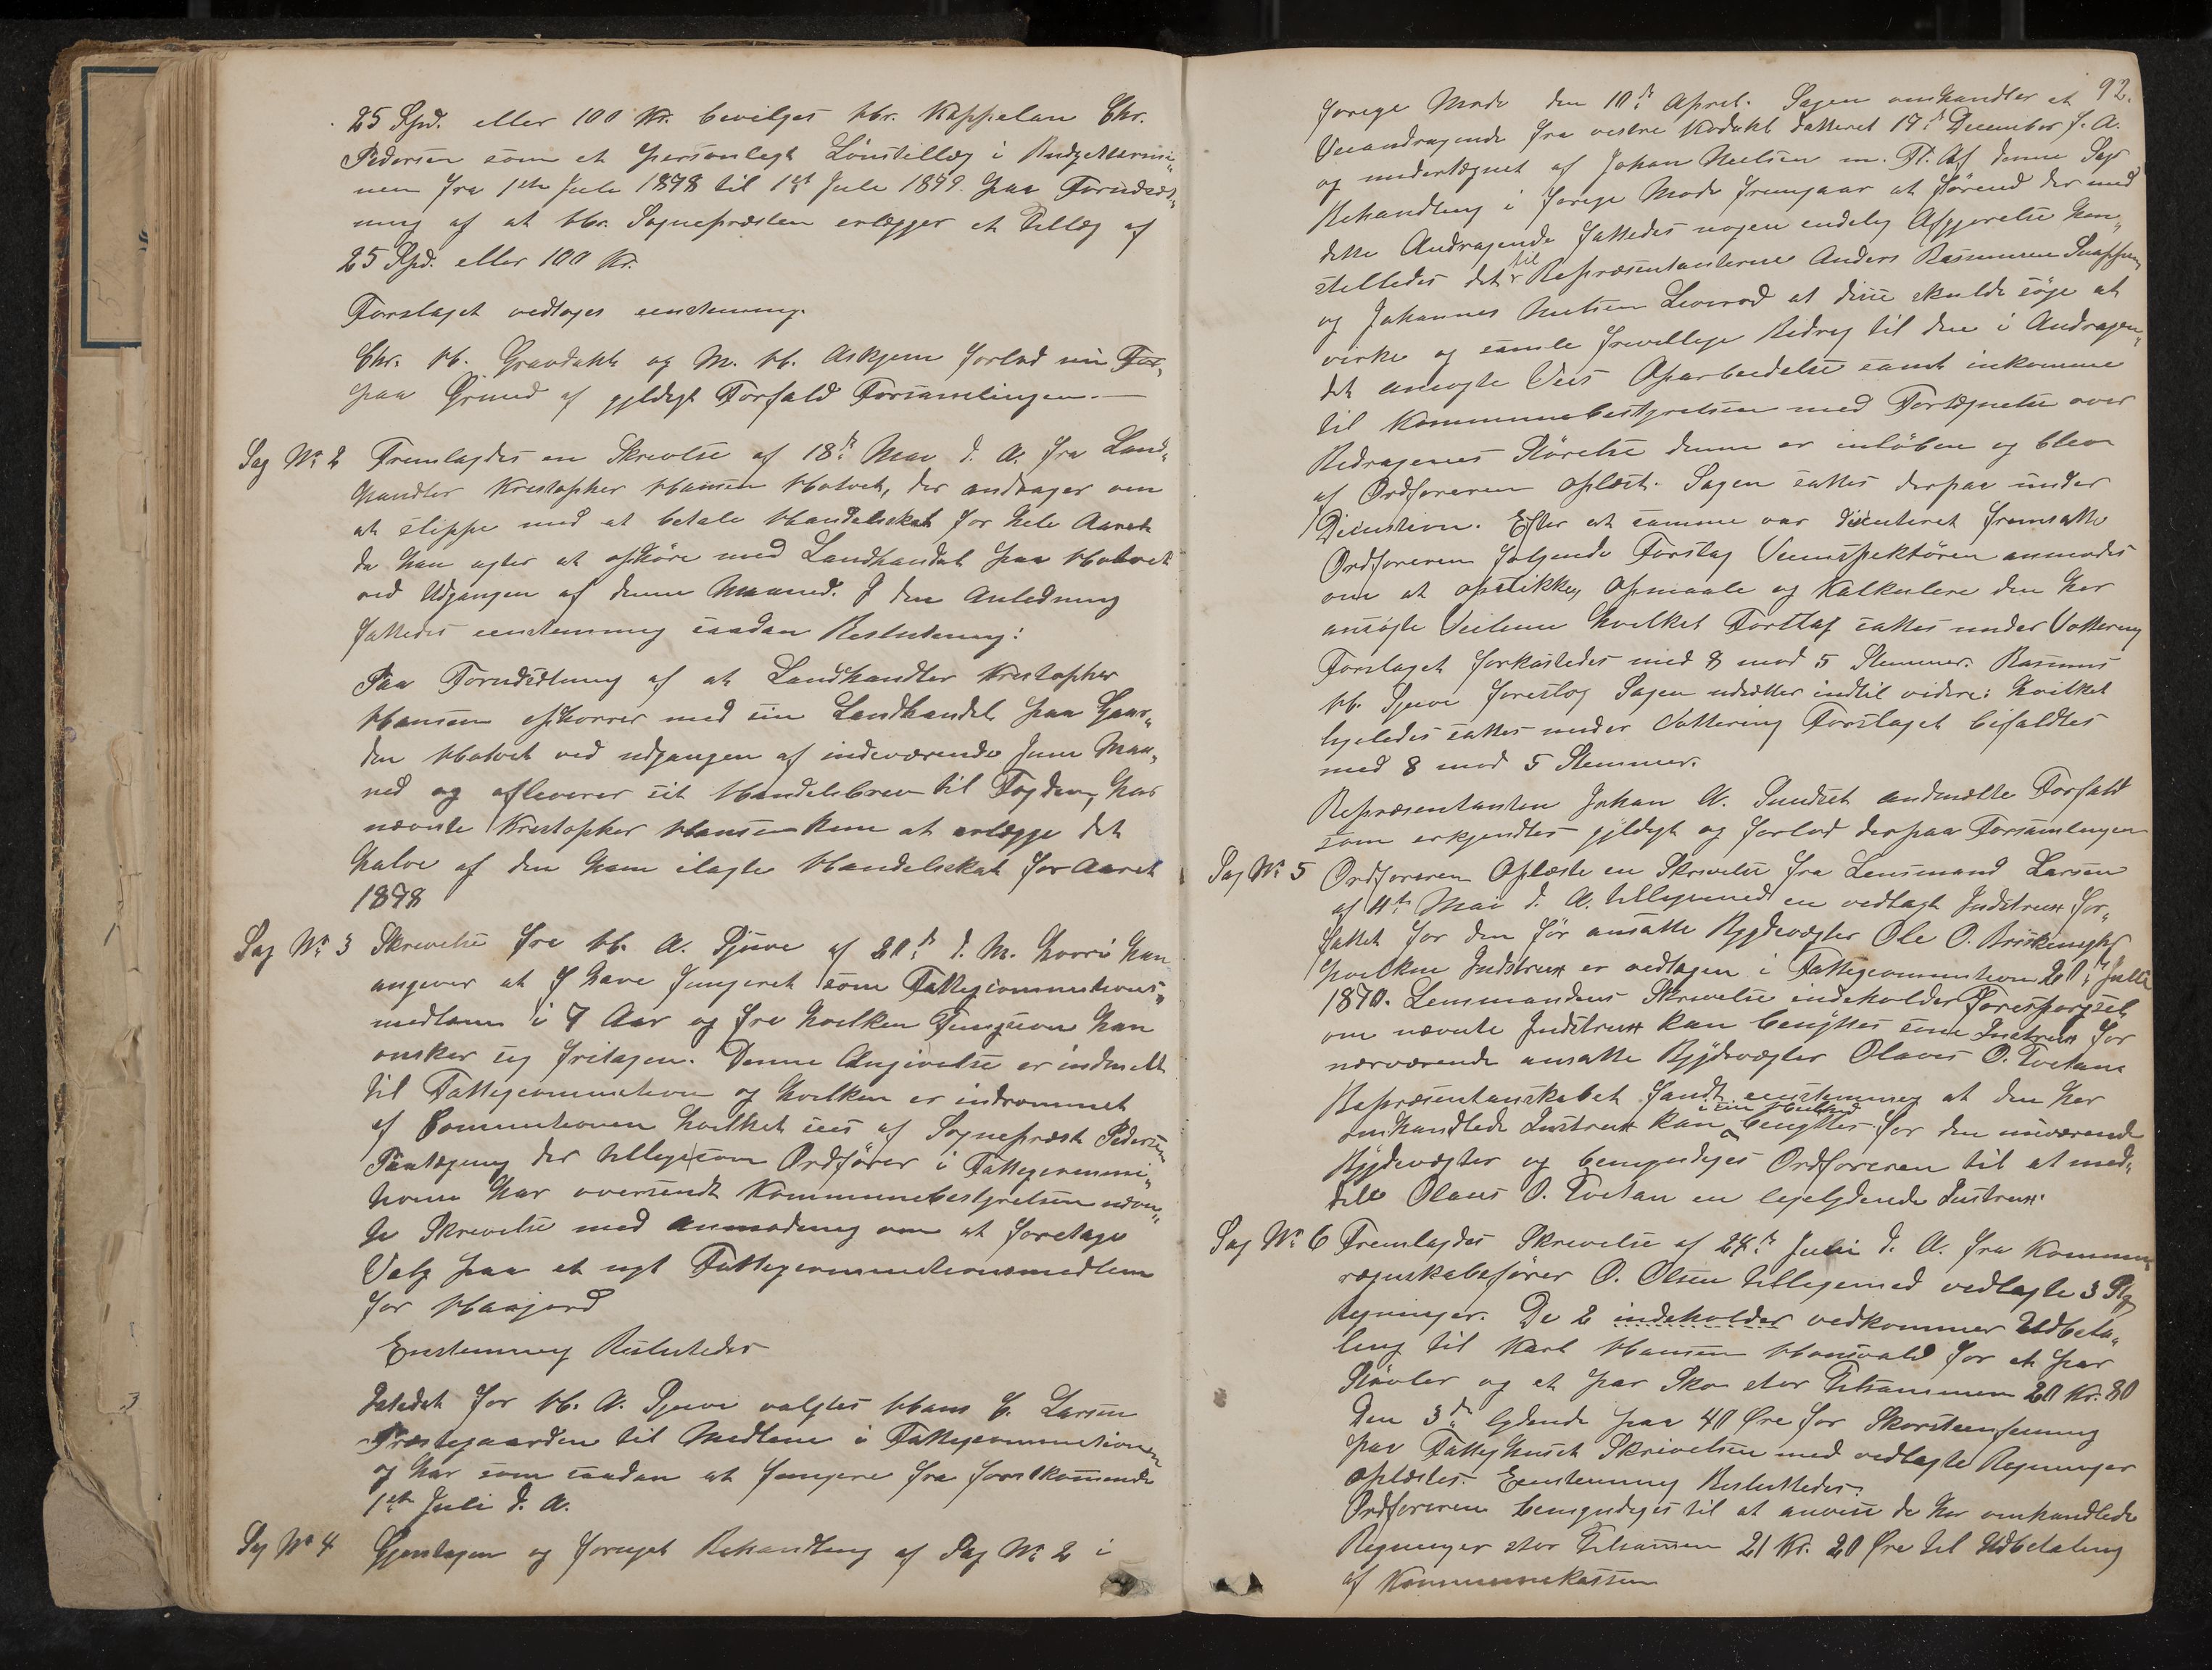 25 Spd. eller 100 Kr. bevilges Hr. Kappelan Chr.
Pedersen som et personlegt Lönstillæg i Budgettermi„
nen fra 1ste Jule 1878 til 1st Jule 1879. paa Forudsæt„
ning af at Hr. Sognepræsten erlægger et Tillæg af
25 Spd. eller 100 Kr.
Forslaget vedtoges eenstemmig.
Chr. H. Gravdahl og M. H. Askjem forlod nu For„
paa Grund af gyldigt Forfald Forsamlingen.—
Sag No 2 Fremlagdes en Skrivelse af 18de Mai d. A. fra Land„
handler Kristopher Hansen Holvet, der andrager om
at slippe med at betale Handelsskat for hele Aaret
da han agter at ophöre med Landhandel paa Holvet
ved Udgangen af denne Maaned. I den Anledning
fattedes eenstemmig saadan Beslutning:
Paa Forudsætning af at Landhandler Kristopher
Hansen ophorer med sin Landhandel paa Gaar„
den Holvet ved udgangen af indeværende Juni Maa„
ned og afleverer sit Handelsbrev til Fogden, har
nævnte Kristopher Hansen kun at erlægge det
halve af den ham ilagte Handelsskat for Aaret
1878
Sag No 3 Skrivelse fra H. A. Tjuve af 20de d. M. hvori han
angever at have fungeret som Fattigcommissions„
medlem i 7 Aar og fra hvilken Function han
ønsker sig fritagen. Denne Angivelse er indmeldt
til Fattigcommissionen og hvilken er indrømmet
af Commissionen hvilket sees af Sognepræst Pedersen
Paategning der tillige som Ordfører i Fattigcommi„
sionen har oversendt Kommunebestyrelsen nævn„
te Skrivelse med Anmodning om at foretage
Valg paa et nyt Fattigcommissionsmedlem
for Haajord
Enstemmig Besluttedes
Istedet for H. A. Tjuve valgtes Hans C. Larsen
Præstegaarden til Medlem i Fattigcommissionen
og har som saadan at fungere fra førstkommende
1ste Juli d. A.
Sag No 4 Gjentagen og fornyet Behandling af Sag No 2 i
92.
forrige Møde den 10de April. Sagen omhandler et
Veiandragende fra vestre Kodahl datteret 17de December f. A.
og undertegnet af Johan Nielsen m. Fl. Af denne Sags
Behandling i forrige Møde fremgaar at förend der med
dette Andragende fattedes nogen endelig Afgjørelse hen„
stilledes det til Repræsentanterne Anders Rasmussen Snappen
og Johannes Nielsen Leverød at disse skulde söge at
virke og samle frivillige Bidrag til den i Andragen„
det ansøgte Veis Oparbeidelse samt inkomme
til Kommunebestyrelsen med Fortegnelse over
Bidragenes Störelse denne er inlöben og blev
af Ordføreren oplæst. Sagen sattes derpaa under
Discussion. Efter at samme var discuteret fremsatte
Ordføreren følgende Forslag Veiinspektören anmodes
om at opstikke, opmaale og Kalkulere den her
ansögte Veilinie hvilket Forslag sattes under Vottering
Forslaget forkastedes med 8 mod 5 Stemmer. Rasmus
H. Tjuve foreslog Sagen udsættes indtil videre: hvilket
ligeledes sattes under Vottering Forslaget bifaldtes
med 8 mod 5 Stemmer.
Repræsentanten Johan A. Sundset andmeldte Forfald
som erkjendtes gyldigt og forlod derpaa Forsamlingen
Sag No 5 Ordføreren Oplæste en Skrivelse fra Lensmand Larsen
af 4de Mai d. A. tilligemed en vedlagt Instrux for„
fattet for den för ansatte Bygdevægter Ole O.
hvilken Instrux er vedtagen i Fattigcommissionen 20de Juli
1870. Lensmandens Skrivelse indeholder Forespørgsel
om nævnte Indstrux kan benyttes som Instrux for
nærværende ansatte Bygdevægter Olaves O. Tvetan
Repræsentanskabet fandt eenstemmig at den her
omhandlede Instrux kan i sin Helhed benyttes for den nuværende
Bygdevægter og bemyndiges Ordføreren til at med„
dele Olaus O. Tvetan en ligelydende Instrux.
Sag No 6 Fremlagdes Skrivelse af 24de Juni d. A. fra Kommune„
regnskabsfører O. Olsen tilligemed vedlagte 3 Stk
Regninger. De 2 indeholder vedkommer Udbeta„
ling til Karl Hansen Honsvald for et par
Støvler og et par Sko stor tilsammen 20 Kr. 80
Den 3die lydende paa 40 Øre for Skorsteensfeining
paa Fattighuset Skrivelsen med vedlagte Regninger
oplæstes. Eenstemmig Besluttedes.
Ordføreren bemyndiges til at anvise de her omhandlede
Regninger stor Tilsammen 21 Kr. 20 Øre til Udbetaling
af Kommunekassen